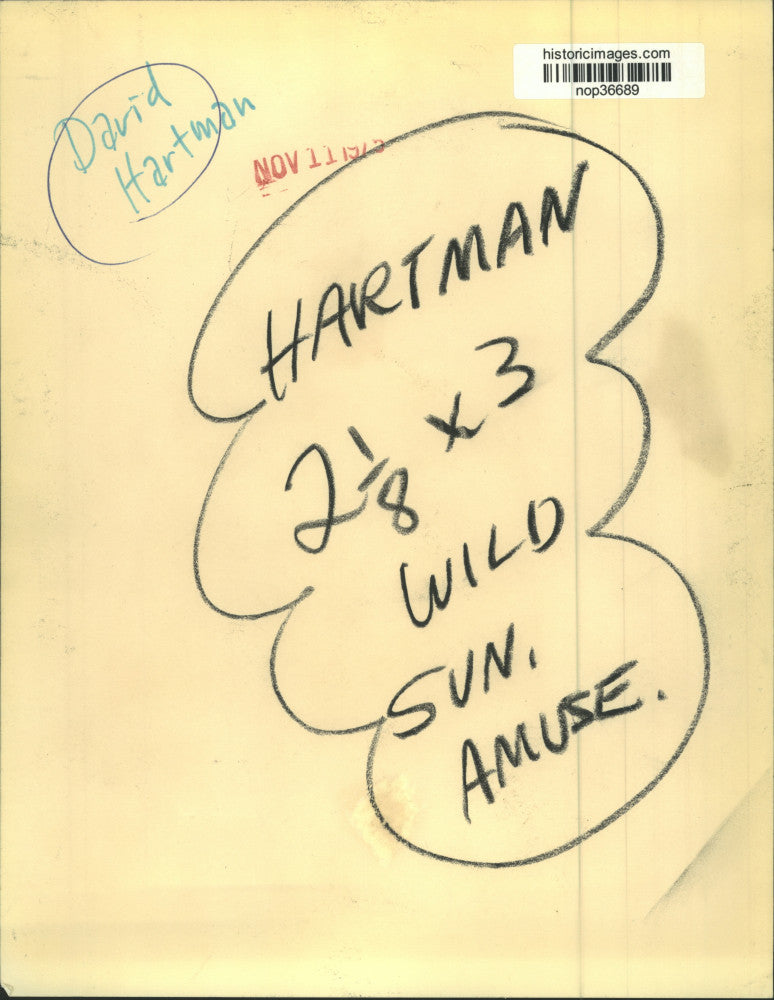 historicimages.com
nop36689
David
Hartman
NOV 11
HARTMAN
2 1/8 x 3
WILD
SUN.
AMUSE.